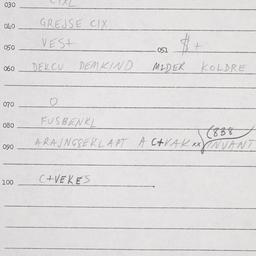 030
040 GREJSE CIX
050 VEST 051 $ +
060 DEKCU DEMKIND MLDER KOLDRE
070 O
080 FUSBENKL (888
090 ARAJNGSEKLAPT A C+VAK xx NVANT
100 C+VEKES